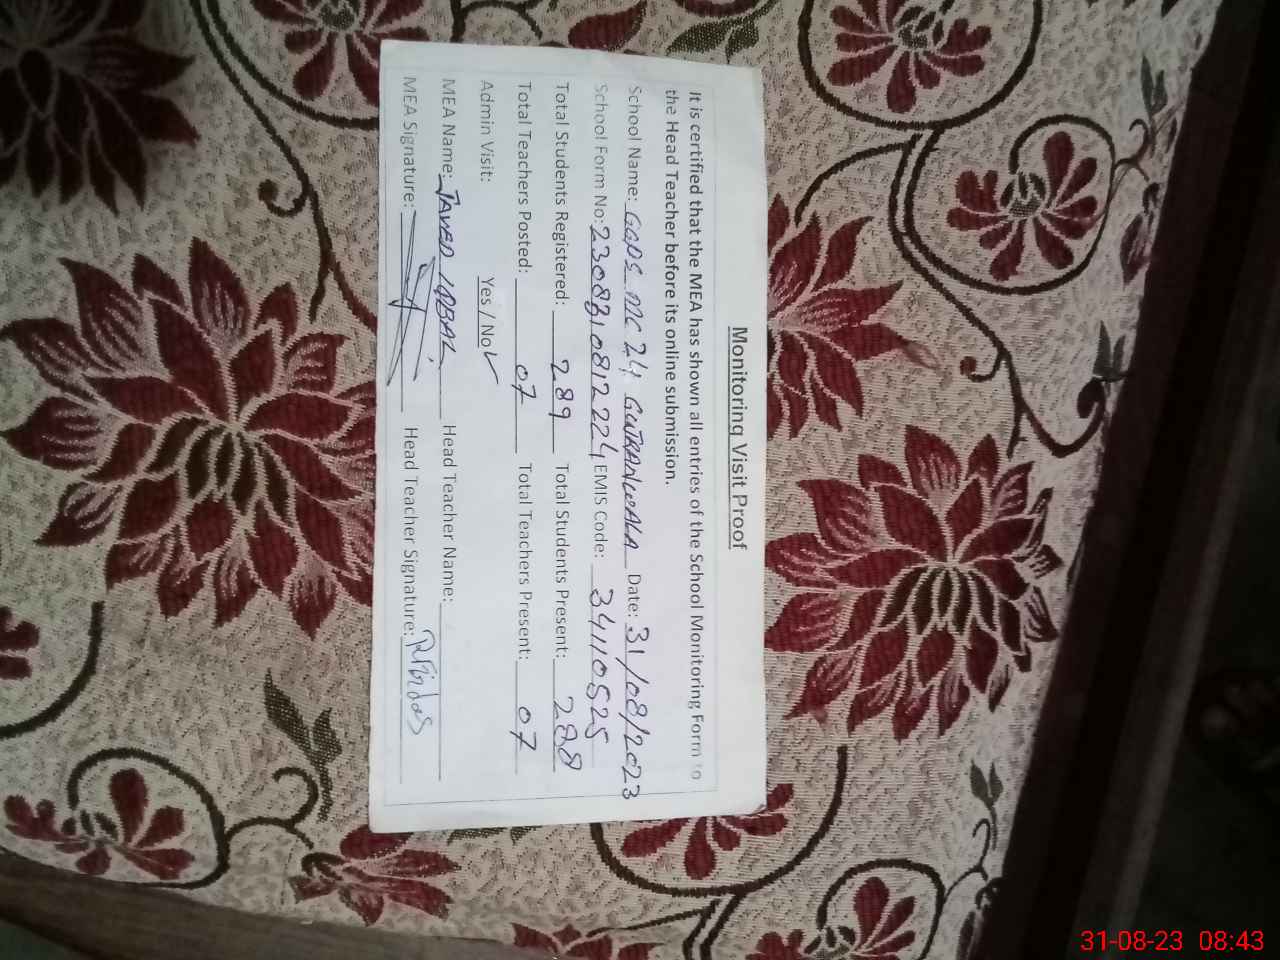 Monitoring Visit Proof
It is certified that the MEA has shown all entries of the School Monitoring Form to
the Head Teacher before its online submission.
School Name: GGPS MC 24 GUJRANWALA Date: 31/08/2023
School Form No: 23083108122224 EMIS Code: 34110525
Total Students Registered: 289 Total Students Present: 288
Total Teachers Posted: 07 Total Teachers Present: 07
Admin Visit: Yes / No ✓
MEA Name: JAVED IQBAL Head Teacher Name:
MEA Signature: Head Teacher Signature:
31-08-23 08:43